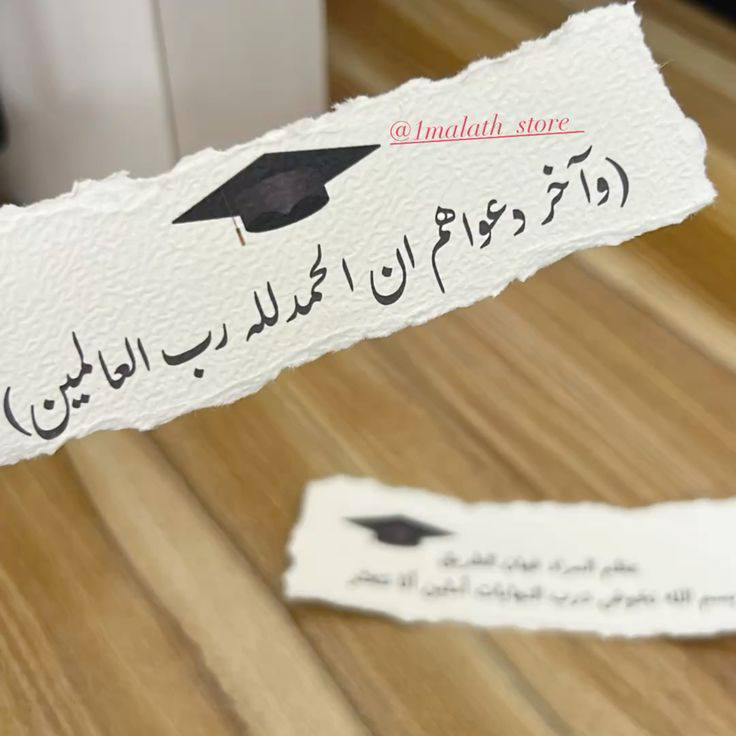 @1malath_store_
(وآخر دعواهم ان الحمدلله رب العالمين)
عظم المراد فهان الطريق
بسم الله نخوض درب النهايات آملين ألا نتعثر